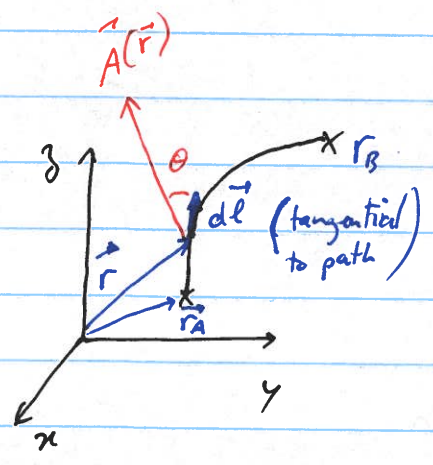 A⃗(r⃗)
z
θ
r_B
dl⃗ (tangential
to path)
r⃗
r⃗_A
y
x